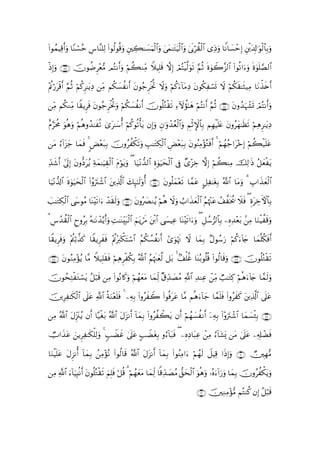 وَبِٱلْوَٰلِدَيْنِ إِحْسَانًا وَذِى ٱلْقُرْبَىٰ وَٱلْيَتَٰمَىٰ وَٱلْمَسَٰكِينِ وَقُولُوا۟ لِلنَّاسِ حُسْنًا وَأَقِيمُوا۟
ٱلصَّلَوٰةَ وَءَاتُوا۟ ٱلزَّكَوٰةَ ثُمَّ تَوَلَّيْتُمْ إِلَّا قَلِيلًا مِّنكُمْ وَأَنتُم مُّعْرِضُونَ ۝ وَإِذْ
أَخَذْنَا مِيثَٰقَكُمْ لَا تَسْفِكُونَ دِمَآءَكُمْ وَلَا تُخْرِجُونَ أَنفُسَكُم مِّن دِيَٰرِكُمْ ثُمَّ أَقْرَرْتُمْ
وَأَنتُمْ تَشْهَدُونَ ۝ ثُمَّ أَنتُمْ هَٰٓؤُلَآءِ تَقْتُلُونَ أَنفُسَكُمْ وَتُخْرِجُونَ فَرِيقًا مِّنكُم مِّن
دِيَٰرِهِمْ تَظَٰهَرُونَ عَلَيْهِم بِٱلْإِثْمِ وَٱلْعُدْوَٰنِ وَإِن يَأْتُوكُمْ أُسَٰرَىٰ تُفَٰدُوهُمْ وَهُوَ مُحَرَّمٌ
عَلَيْكُمْ إِخْرَاجُهُمْ ۚ أَفَتُؤْمِنُونَ بِبَعْضِ ٱلْكِتَٰبِ وَتَكْفُرُونَ بِبَعْضٍ ۚ فَمَا جَزَآءُ مَن
يَفْعَلُ ذَٰلِكَ مِنكُمْ إِلَّا خِزْىٌ فِى ٱلْحَيَوٰةِ ٱلدُّنْيَا ۖ وَيَوْمَ ٱلْقِيَٰمَةِ يُرَدُّونَ إِلَىٰٓ أَشَدِّ
ٱلْعَذَابِ ۗ وَمَا ٱللَّهُ بِغَٰفِلٍ عَمَّا تَعْمَلُونَ ۝ أُو۟لَٰٓئِكَ ٱلَّذِينَ ٱشْتَرَوُا۟ ٱلْحَيَوٰةَ ٱلدُّنْيَا
بِٱلْءَاخِرَةِ ۖ فَلَا يُخَفَّفُ عَنْهُمُ ٱلْعَذَابُ وَلَا هُمْ يُنصَرُونَ ۝ وَلَقَدْ ءَاتَيْنَا مُوسَى ٱلْكِتَٰبَ
وَقَفَّيْنَا مِنۢ بَعْدِهِۦ بِٱلرُّسُلِ ۖ وَءَاتَيْنَا عِيسَى ٱبْنَ مَرْيَمَ ٱلْبَيِّنَٰتِ وَأَيَّدْنَٰهُ بِرُوحِ ٱلْقُدُسِ ۗ
أَفَكُلَّمَا جَآءَكُمْ رَسُولٌۢ بِمَا لَا تَهْوَىٰٓ أَنفُسُكُمُ ٱسْتَكْبَرْتُمْ فَفَرِيقًا كَذَّبْتُمْ وَفَرِيقًا
تَقْتُلُونَ ۝ وَقَالُوا۟ قُلُوبُنَا غُلْفٌۢ ۚ بَل لَّعَنَهُمُ ٱللَّهُ بِكُفْرِهِمْ فَقَلِيلًا مَّا يُؤْمِنُونَ ۝
وَلَمَّا جَآءَهُمْ كِتَٰبٌ مِّنْ عِندِ ٱللَّهِ مُصَدِّقٌ لِّمَا مَعَهُمْ وَكَانُوا۟ مِن قَبْلُ يَسْتَفْتِحُونَ
عَلَى ٱلَّذِينَ كَفَرُوا۟ فَلَمَّا جَآءَهُم مَّا عَرَفُوا۟ كَفَرُوا۟ بِهِۦ ۚ فَلَعْنَةُ ٱللَّهِ عَلَى ٱلْكَٰفِرِينَ ۝
بِئْسَمَا ٱشْتَرَوْا۟ بِهِۦٓ أَنفُسَهُمْ أَن يَكْفُرُوا۟ بِمَآ أَنزَلَ ٱللَّهُ بَغْيًا أَن يُنَزِّلَ ٱللَّهُ مِن
فَضْلِهِۦ عَلَىٰ مَن يَشَآءُ مِنْ عِبَادِهِۦ ۖ فَبَآءُو بِغَضَبٍ عَلَىٰ غَضَبٍ ۚ وَلِلْكَٰفِرِينَ عَذَابٌ
مُّهِينٌ ۝ وَإِذَا قِيلَ لَهُمْ ءَامِنُوا۟ بِمَآ أَنزَلَ ٱللَّهُ قَالُوا۟ نُؤْمِنُ بِمَآ أُنزِلَ عَلَيْنَا
وَيَكْفُرُونَ بِمَا وَرَآءَهُۥ وَهُوَ ٱلْحَقُّ مُصَدِّقًا لِّمَا مَعَهُمْ ۗ قُلْ فَلِمَ تَقْتُلُونَ أَنۢبِيَآءَ ٱللَّهِ مِن
قَبْلُ إِن كُنتُم مُّؤْمِنِينَ ۝